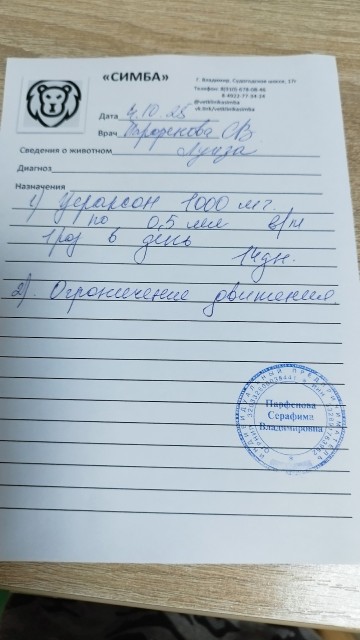 «СИМБА»
г. Владимир, Судогодское шоссе, 17г
Телефон: 8(910)-678-08-46
8-4922-77-34-24
@vetklinikasimba
vk.link/vetklinikasimba
Дата 4.10.25
Врач Парфенова СВ
Сведения о животном Луиза
Диагноз
Назначения
1) Цераксон 1000 мг.
по 0,5 мл в/м
1 раз в день
14 дн.
2). Ограничение движения.
ИНДИВИДУАЛЬНЫЙ ПРЕДПРИНИМАТЕЛЬ
Парфенова
Серафима
Владимировна